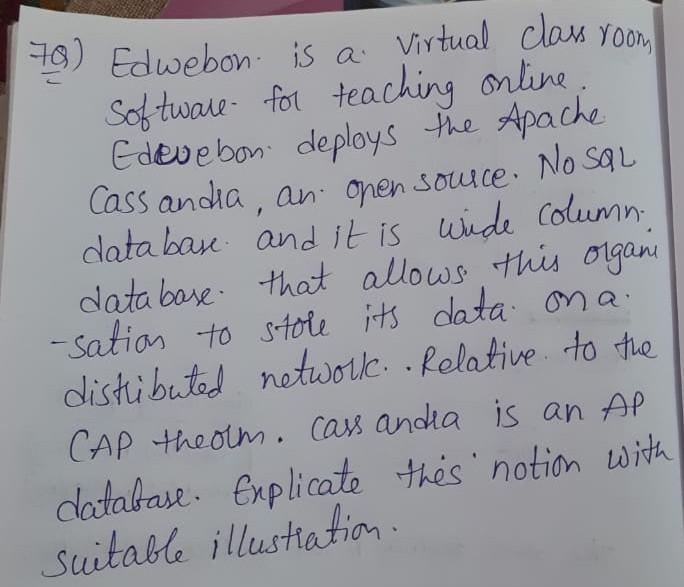 7Q) Edwebon is a Virtual class room
Software for teaching online.
Edwebon deploys the Apache
Cassandra, an open source. No SQL
database and it is wide column
database that allows this organi
-sation to store its data on a
distributed network. Relative to the
CAP theorm. Cassandra is an AP
database. Explicate this notion with
suitable illustration.